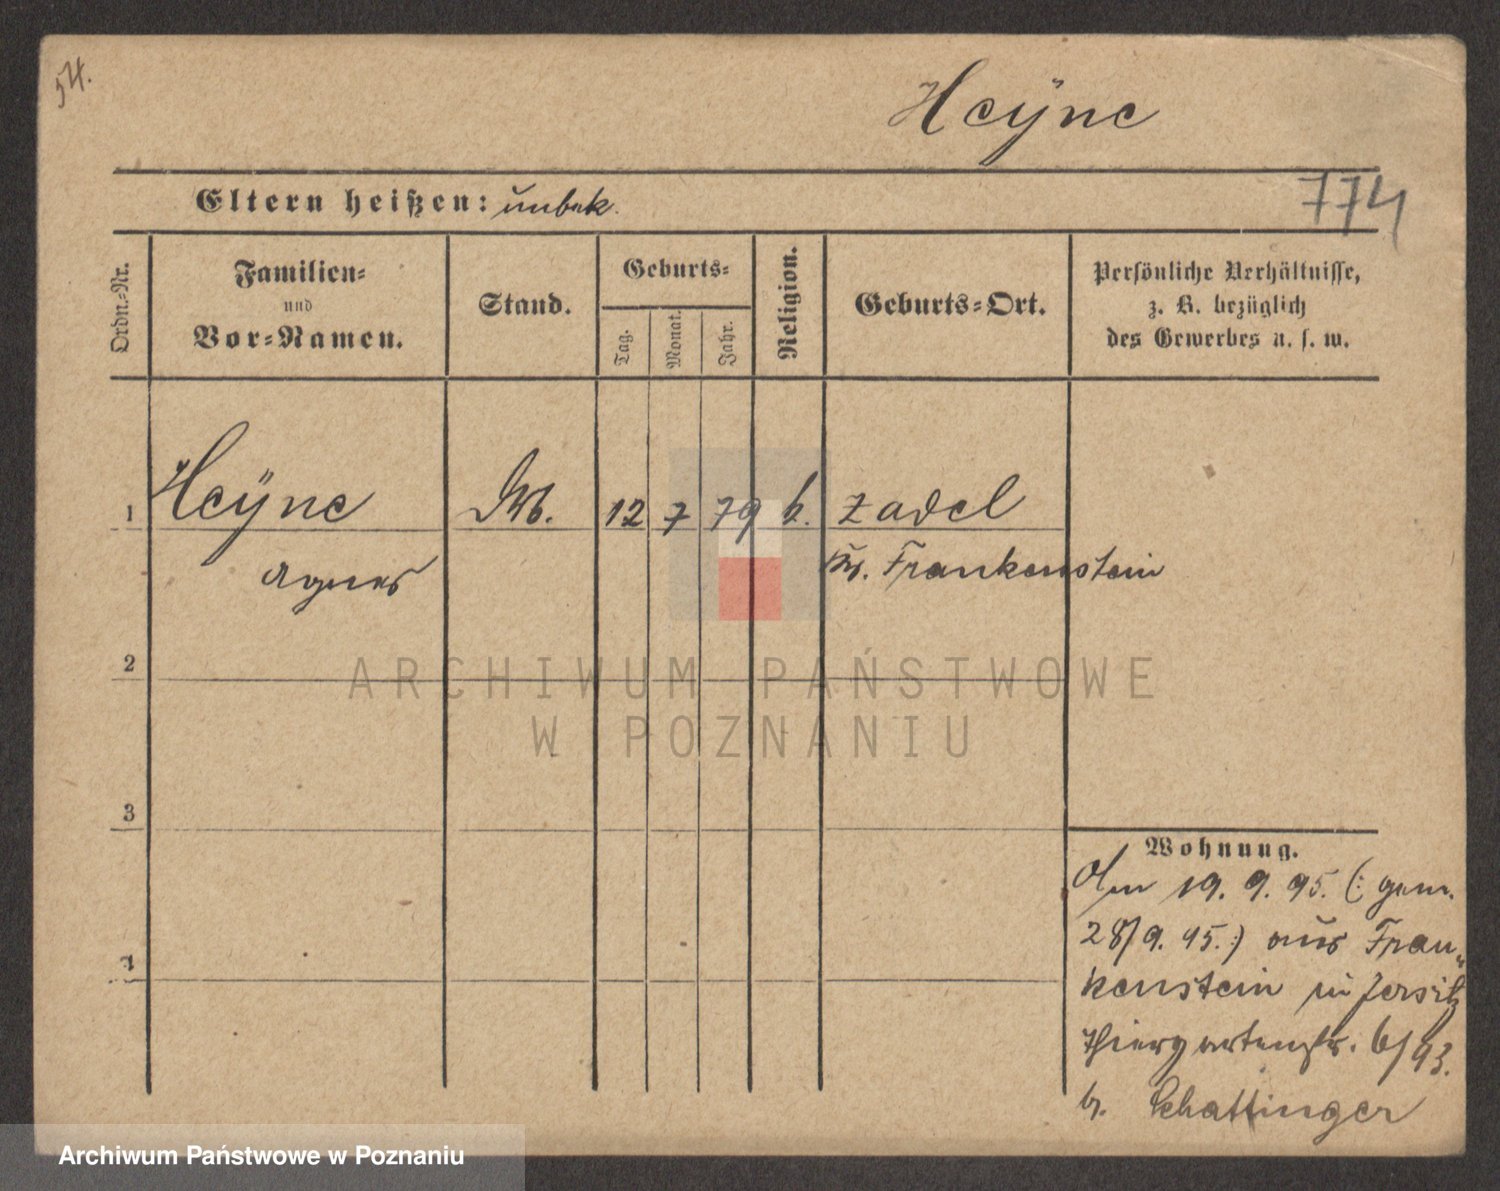 54.
Heÿne
774
Eltern heißen: unbek.
Ordn.=Nr.
Familien=
und
Vor=Namen.
Stand.
Geburts=
Tag.
Monat.
Jahr.
Religion.
Geburts=Ort.
Persönliche Verhältnisse,
z. B. bezüglich
des Gewerbes u. s. w.
1 Heÿne 12 7 79 k. Zadel
Agnes Kr. Frankenstein
2
ARCHIWUM PAŃSTWOWE
W POZNANIU
3
4
Wohnung.
Am 19. 9. 95. (: gem.
28/9. 95. :) aus Fran„
kenstein in Jersitz
Thiergartenstr. 6/93.
b. Schattinger
Archiwum Państwowe w Poznaniu